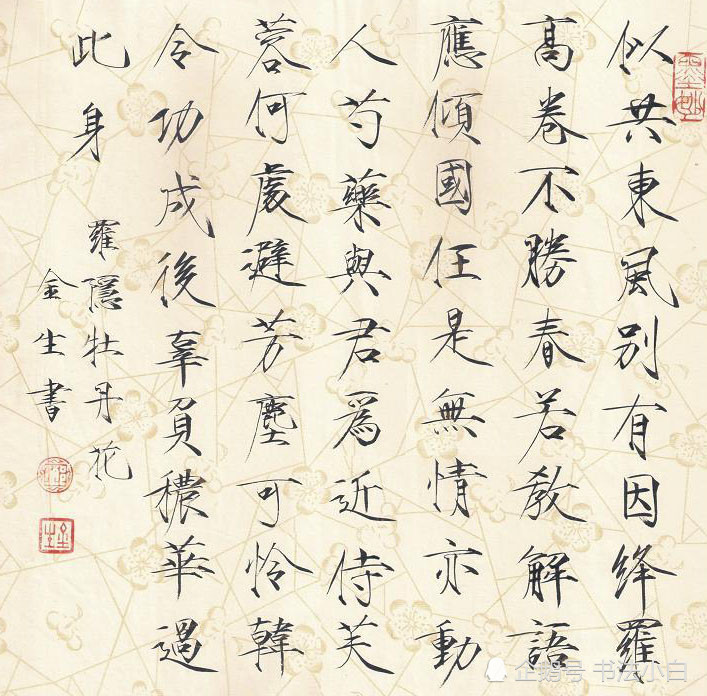 似共東風別有因絳羅
高卷不勝春若教解語
應傾國任是無情亦動
人芍藥與君爲近侍芙
蓉何處避芳塵可怜韓
令功成後辜負穠華過
此身
羅隱牡丹花
金生書
企鹅号 书法小白